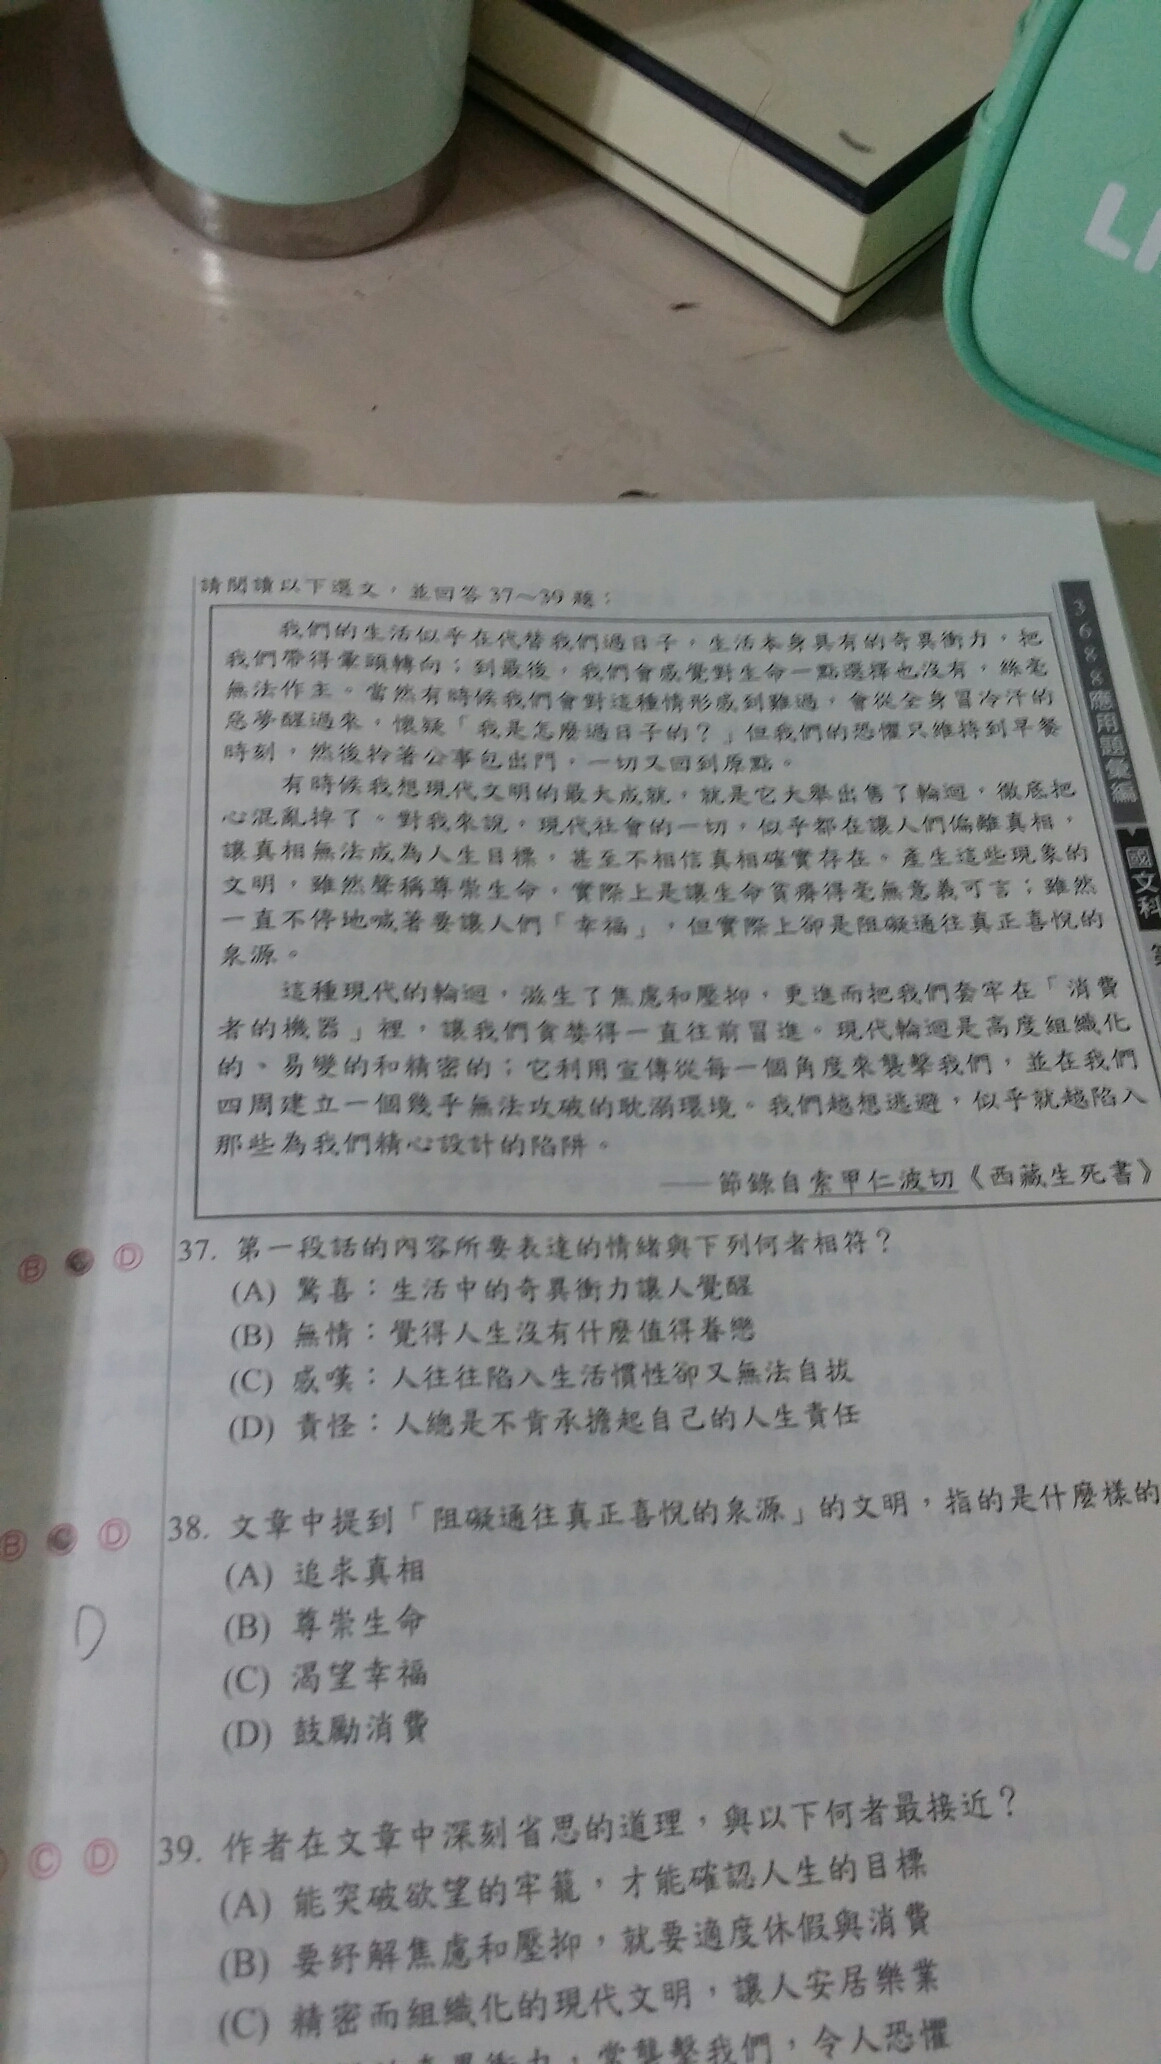 LI
請閱讀以下選文，並回答 37～39 題：
我們的生活似乎在代替我們過日子，生活本身具有的奇異衝力，把
我們帶得暈頭轉向；到最後，我們會感覺對生命一點選擇也沒有，絲毫
無法作主。當然有時候我們會對這種情形感到難過，會從全身冒冷汗的
惡夢醒過來，懷疑「我是怎麼過日子的？」但我們的恐懼只維持到早餐
時刻，然後拎著公事包出門，一切又回到原點。
有時候我想現代文明的最大成就，就是它大舉出售了輪迴，徹底把
心混亂掉了。對我來說，現代社會的一切，似乎都在讓人們偏離真相，
讓真相無法成為人生目標，甚至不相信真相確實存在。產生這些現象的
文明，雖然聲稱尊崇生命，實際上是讓生命貧瘠得毫無意義可言；雖然
一直不停地喊著要讓人們「幸福」，但實際上卻是阻礙通往真正喜悅的
泉源。
這種現代的輪迴，滋生了焦慮和壓抑，更進而把我們套牢在「消費
者的機器」裡，讓我們貪婪得一直往前冒進。現代輪迴是高度組織化
的、易變的和精密的；它利用宣傳從每一個角度來襲擊我們，並在我們
四周建立一個幾乎無法攻破的耽溺環境。我們越想逃避，似乎就越陷入
那些為我們精心設計的陷阱。
——節錄自索甲仁波切《西藏生死書》
3688應用題彙編 國文科
Ⓑ Ⓒ Ⓓ 37. 第一段話的內容所要表達的情緒與下列何者相符？
(A) 驚喜：生活中的奇異衝力讓人覺醒
(B) 無情：覺得人生沒有什麼值得眷戀
(C) 感嘆：人往往陷入生活慣性卻又無法自拔
(D) 責怪：人總是不肯承擔起自己的人生責任
Ⓑ Ⓒ Ⓓ 38. 文章中提到「阻礙通往真正喜悅的泉源」的文明，指的是什麼樣的
(A) 追求真相
D
(B) 尊崇生命
(C) 渴望幸福
(D) 鼓勵消費
Ⓒ Ⓓ 39. 作者在文章中深刻省思的道理，與以下何者最接近？
(A) 能突破欲望的牢籠，才能確認人生的目標
(B) 要紓解焦慮和壓抑，就要適度休假與消費
(C) 精密而組織化的現代文明，讓人安居樂業
奇異衝力，常襲擊我們，令人恐懼